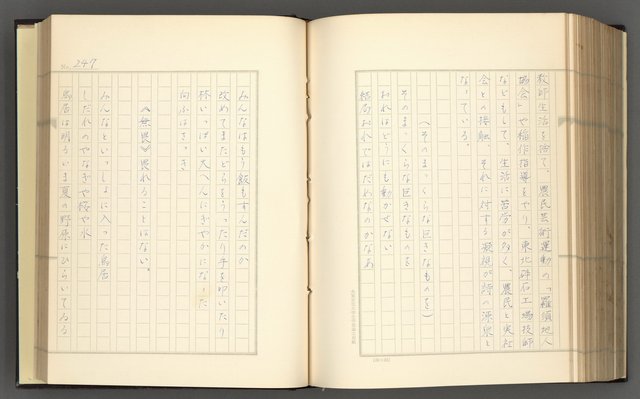 教師生活を捨て、農民芸術運動の「羅須地人
協会」や稲作指導をやり、東北砕石工場技師
などもして、生活に苦労が多く、農民と実社
会との接触、それに対する凝視が詩の源泉と
なっている。
（そのまゝくらな巨きなものを）
そのまゝくらな巨きなものを
おれはどうにも動かせない
結局おれではだめなのかなあ
No. 247
みんなはもう飯もすんだのか
改めてまたどらをうったり手を叩いたり
林いっぱい大へんにぎやかになった
向ふはさっき
《無畏》畏れることはない。
みんなといっしょに入った鳥居
しだれのやなぎや桜や水
鳥居は明るいま夏の野原にひらいてゐる